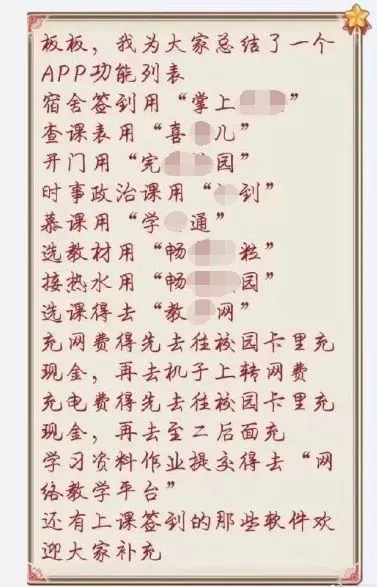 板板，我为大家总结了一个
APP功能列表
宿舍签到用“掌上”
查课表用“喜儿”
开门用“完园”
时事政治课用“到”
慕课用“学通”
选教材用“畅粒”
接热水用“畅园”
选课得去“教网”
充网费得先去往校园卡里充
现金，再去机子上转网费
充电费得先去往校园卡里充
现金，再去至二后面充
学习资料作业提交得去“网
络教学平台”
还有上课签到的那些软件欢
迎大家补充